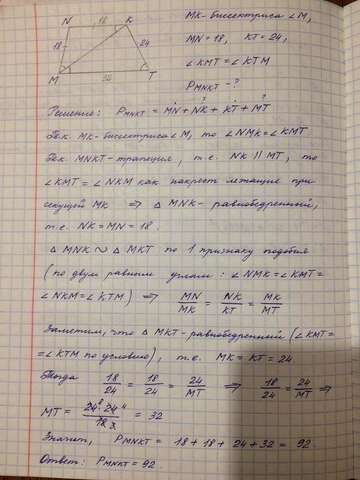 N 18 K
MK - биссектриса ∠M,
18 24
MN = 18, KT = 24,
M 32 T
∠KMT = ∠KTM
P_MNKT - ?
Решение: P_MNKT = MN + NK + KT + MT
Т.к. MK - биссектриса ∠M, то ∠NMK = ∠KMT
Т.к. MNKT - трапеция, т.е. NK || MT, то
∠KMT = ∠NKM как накрест лежащие при
секущей MK ⇒ △MNK - равнобедренный,
т.е. NK = MN = 18.
△MNK ∾ △MKT по 1 признаку подобия
(по двум равным углам: ∠NMK = ∠KMT =
∠NKM = ∠KTM) ⇒ MN/MK = NK/KT = MK/MT
Заметим, что △MKT - равнобедренный (∠KMT =
= ∠KTM по условию), т.е. MK = KT = 24
Тогда 18/24 = 18/24 = 24/MT ⇒ 18/24 = 24/MT ⇒
MT = 24 · 24 / 18 = 32
Значит, P_MNKT = 18 + 18 + 24 + 32 = 92
Ответ: P_MNKT = 92.